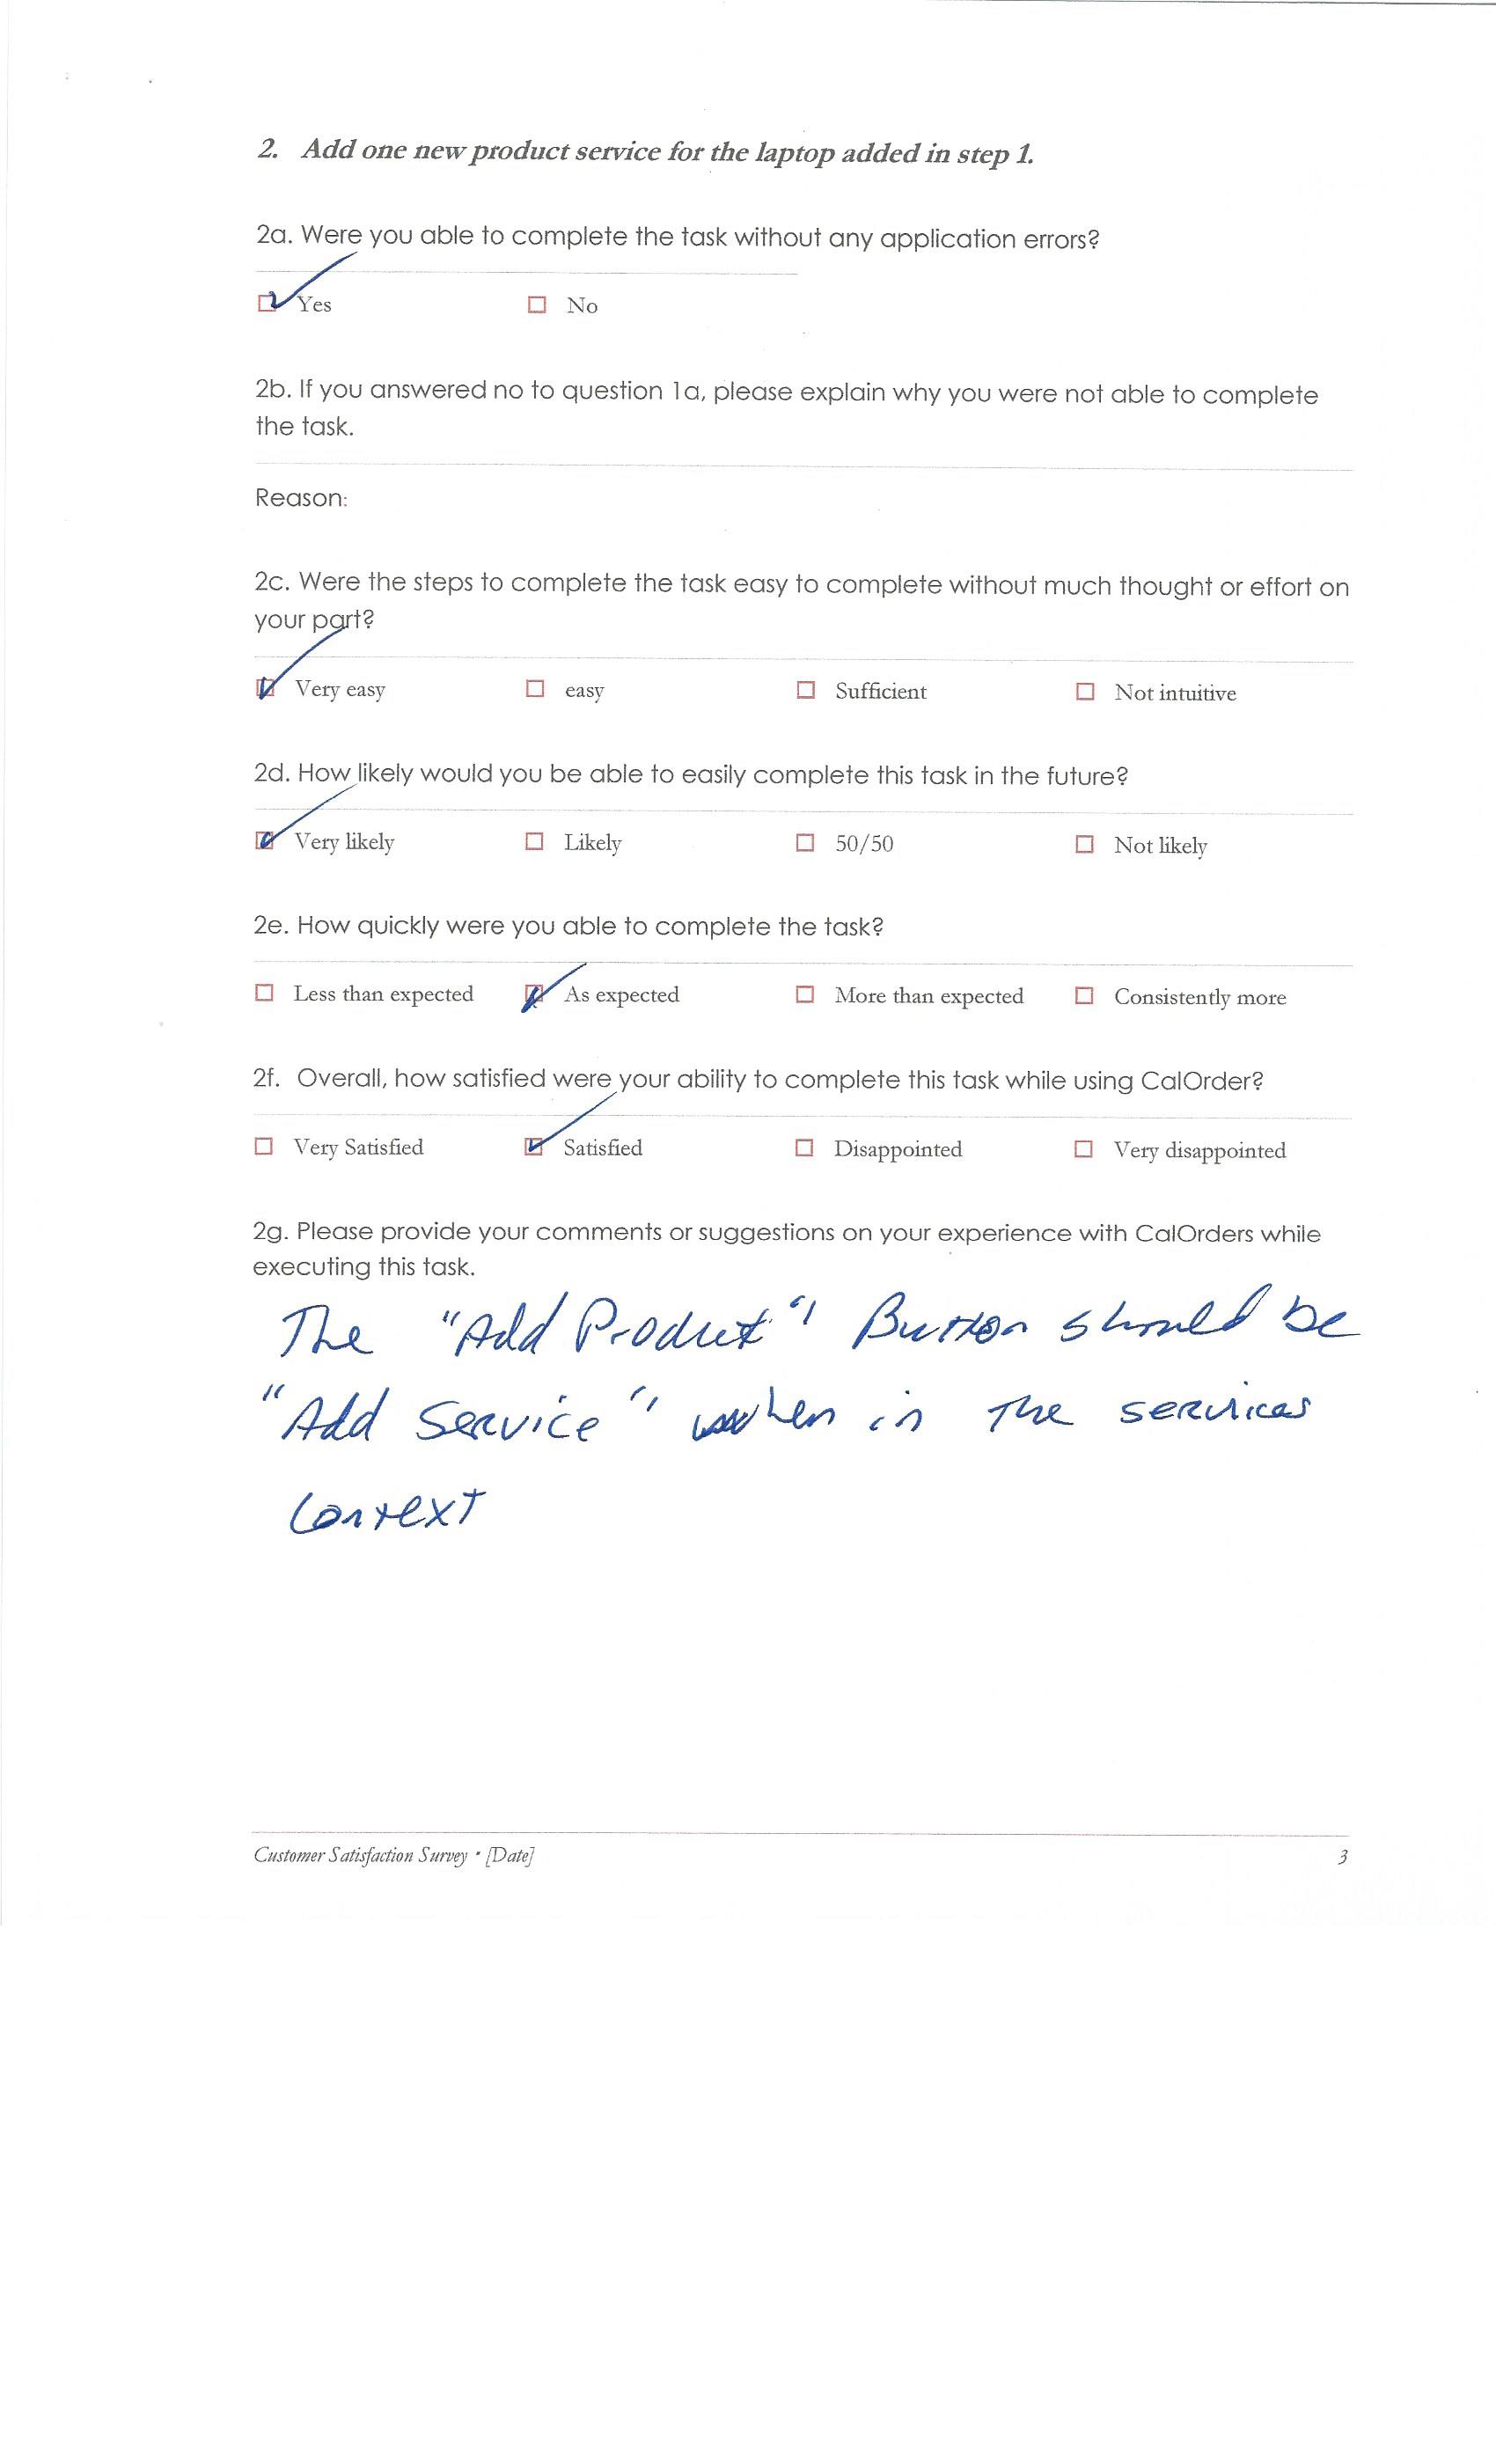 2. Add one new product service for the laptop added in step 1.
2a. Were you able to complete the task without any application errors?
Yes No
2b. If you answered no to question 1a, please explain why you were not able to complete
the task.
Reason:
2c. Were the steps to complete the task easy to complete without much thought or effort on
your part?
Very easy easy Sufficient Not intuitive
2d. How likely would you be able to easily complete this task in the future?
Very likely Likely 50/50 Not likely
2e. How quickly were you able to complete the task?
Less than expected As expected More than expected Consistently more
2f. Overall, how satisfied were your ability to complete this task while using CalOrder?
Very Satisfied Satisfied Disappointed Very disappointed
2g. Please provide your comments or suggestions on your experience with CalOrders while
executing this task.
The "Add Product" Button should be
"Add Service" when in The services
Context
Customer Satisfaction Survey • [Date] 3